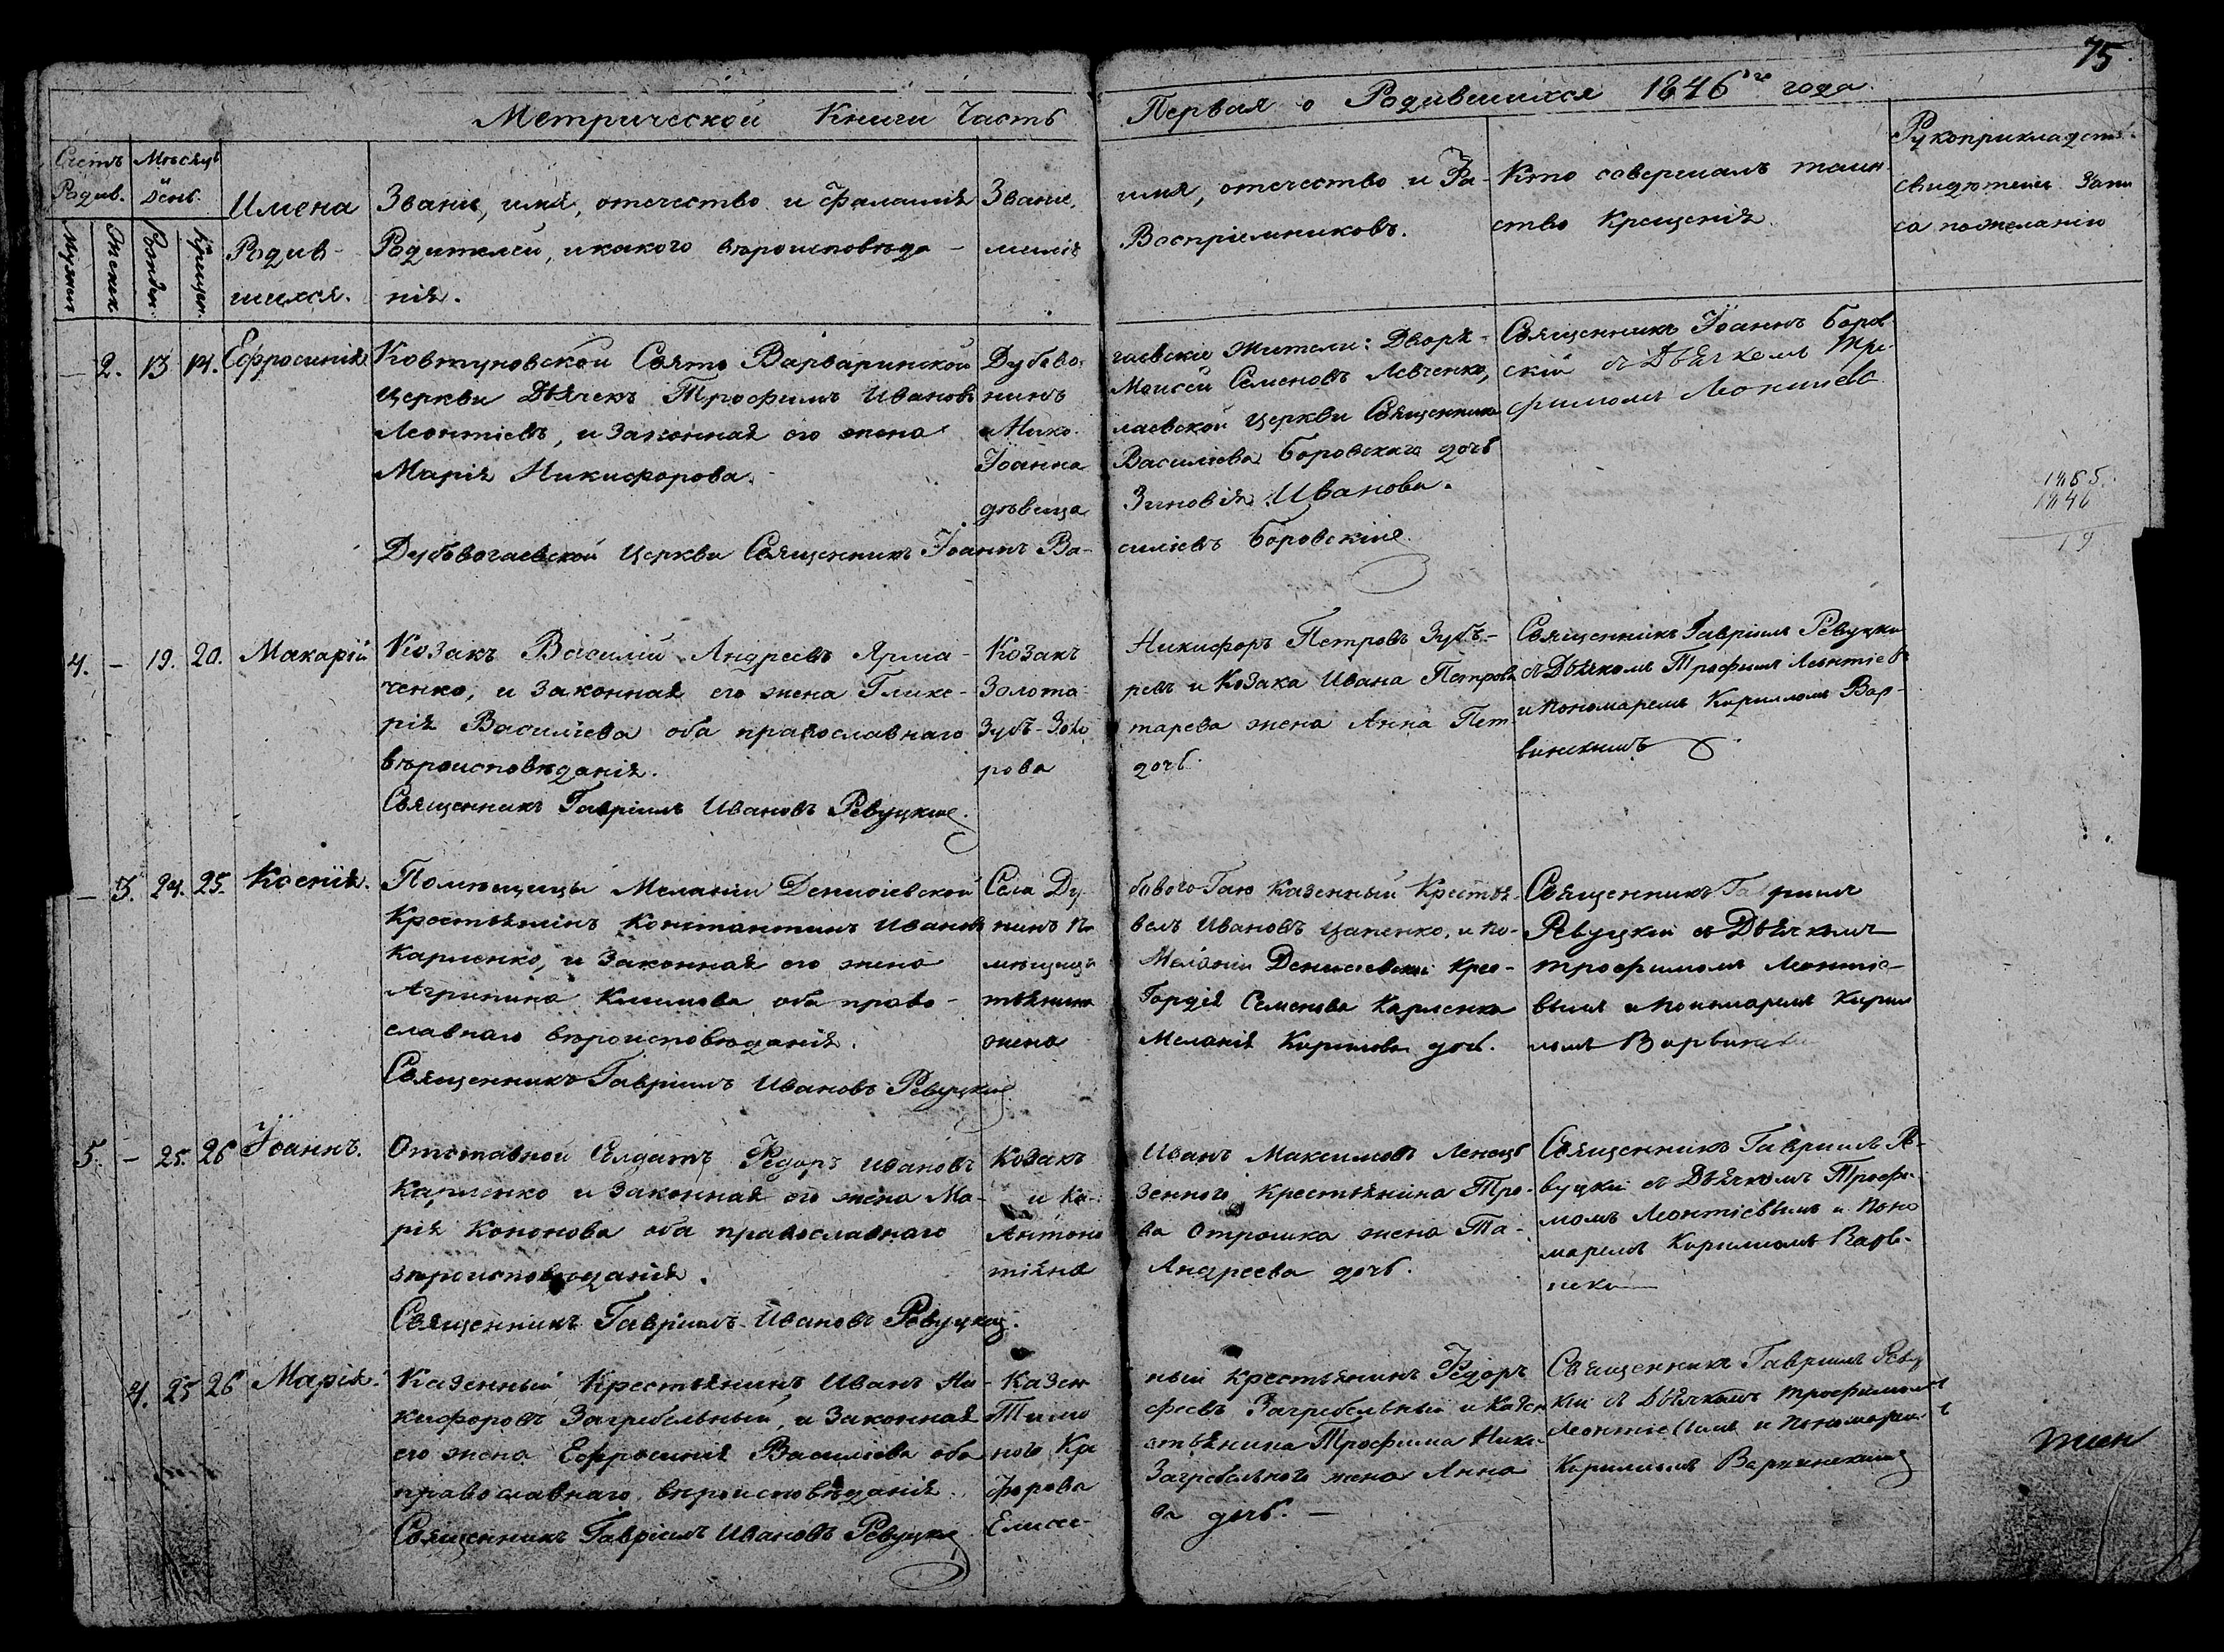 75.
Метрической Книги Часть Первая о Родившихся 1846го года.
Счетъ Родив.
Мѣсяцъ и День.
Мужеска
Женска
Рожден.
Крещен.
Имена
Родив-
шихся.
Званіе, имя, отечество и фамилія
Родителей, и какого вѣроисповѣда-
нія.
Званіе, имя, отечество и Фа-
милія Воспріемниковъ.
Кто совершалъ таин
ство Крещенія.
Рукоприкладств.
свидѣтелей запи
си по желанію
— 2. 13 14. Ефросинія
Ковтуновской Свято Варваринской
Церкви Дьячекъ Трофимъ Ивановъ
Леонтіевъ, и Законная его жена
Марія Никифорова.
Дубово-гаевскіе жители: Дворя-
нинъ Моисей Семеновъ Левченко,
и Нико-лаевской Церкви Священника
Іоанна Василіева Боровскаго дочь
дѣвица Зиновія Иванова.
Дубовогаевской Церкви Священникъ Іоаннъ Ва-силіевъ Боровскій.
Священникъ Іоаннъ Боров
скій съ Дьячкомъ Тро-
фимомъ
1865.
1846
19
4. — 19. 20. Макарій
Козакъ Василій Андреевъ Ярма-
ченко, и Законная его жена Глике-
рія Василіева оба православнаго
вѣроисповѣданія.
Священникъ Гавріилъ Ивановъ Ревуцкій.
Козакъ Никифоръ Петровъ Зубъ-
Золота-ревъ и Козака Ивана Петрова
Зубъ-Золо-тарева жена Анна Пет
рова дочь.
Священникъ Гавріилъ Ревуцкій
съ Дьячкомъ Трофим Леонтіев
и Пономаремъ Кирилломъ Вар-
винскимъ
— 3. 24. 25. Ксенія.
Помѣщицы Меланіи Денисіевской
Крестьянинъ Константинъ Ивановъ
Карпенко, и Законная его жена
Агрипина Климова оба право-
славнаго вѣроисповѣданія.
Священникъ Гавріилъ Ивановъ Ревуцкій
Села Ду-бового-Гаю Казенный Крестья-
нинъ Па-велъ Ивановъ Цапенко, и по-
мѣщицы Меланіи Денисіевской Крес-
тьянина Гордія Семенова Карпенка
жена Меланія Кирилова дочь.
Священникъ Гавріилъ
Ревуцкій съ Дьячкомъ
Трофимомъ Леонтіе-
вымъ и Пономаремъ Кирил
ломъ
5. — 25. 26 Іоаннъ.
Отставной Солдатъ Федоръ Ивановъ
Карпенко и Законная его жена Ма-
рія Кононова оба православнаго
вѣроисповѣданія.
Священникъ Гавріилъ Ивановъ Ревуцкій.
Козакъ Иванъ Максимовъ Ленецъ
и Ка-зенного Крестьянина Тро-
Антоно-ва Отрошка жена Та-
тіяна Андреева дочь.
Священникъ Гавріилъ Ре-
вуцкій съ Дьячкомъ Трофи-
момъ Леонтіевымъ и Поно
маремъ Кирилломъ
4. 25 26 Марія.
Казенный Крестьянинъ Иванъ Ни-
кифоровъ Загребельный, и Законная
его жена Ефросинія Василіева оба
православнаго вѣроисповѣданія.
Священникъ Гавріилъ Ивановъ Ревуцкій
Казен-ный Крестьянинъ Федоръ
Тимо-феевъ Загребельный и Казен
ного Кре-стьянина Трофима Ники-
форова Загребельного жена Анна
Елисее-ва дочь. —
Священникъ Гавріилъ Ревуц
кій съ Дьячкомъ Трофимомъ
Леонтіевымъ и Пономаремъ
Кирилломъ Варвинскимъ